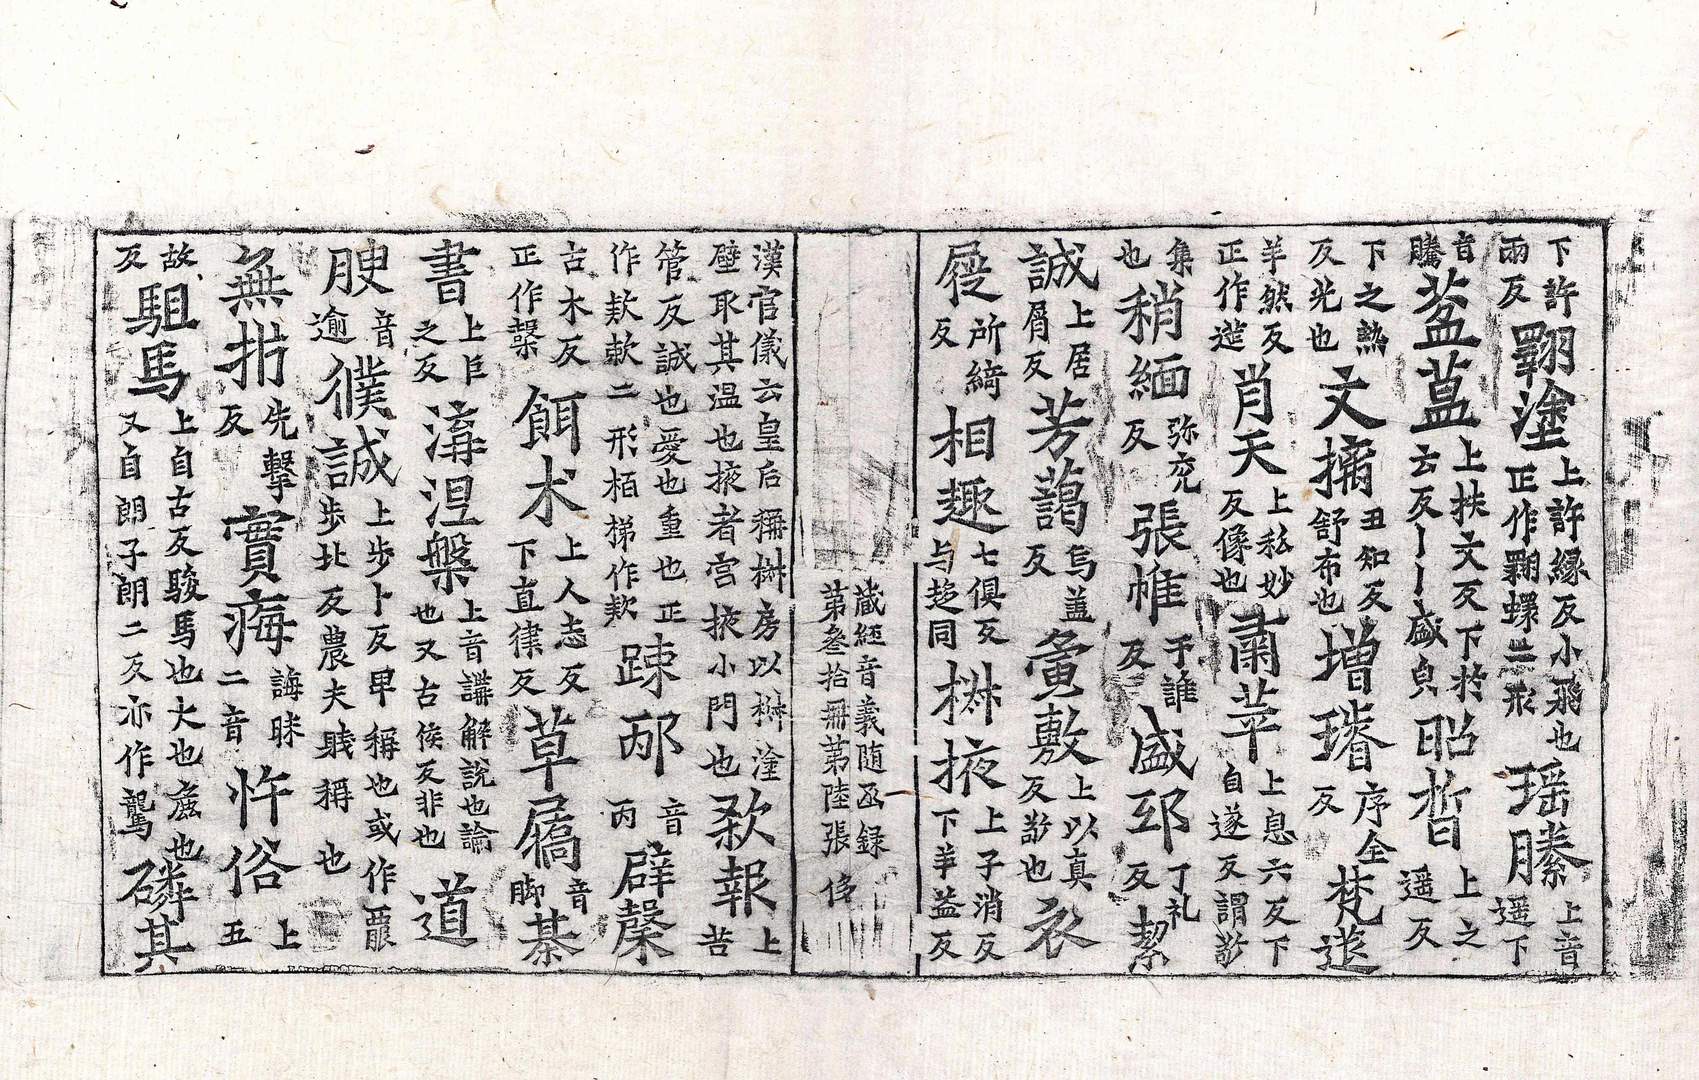 下許兩反翾塗上許緣反小飛也正作翾蠉二形瑶縢上音遥下
音騰葢葢上扶文反下於云反丨丨盛皃昭晢上之遥反
下之熱反光也文摛丑知反舒布也増璿序全反梵迷
羊然反正作遊肖天上私妙反像也肅莘上息六反下自遂反謂敬
集也稍緬弥兖反張帷于誰反盛邳丁礼反絜
誠上居屑反芳藹烏盖反夤敷上以真反敬也衣
屣所綺反相趣七俱反与趍同椒掖上子消反下羊益反
藏經音義随函録第叁拾冊第陸張
漢官儀云皇后稱椒房以椒塗壁取其温也掖者宫掖小門也欵報上苦
管反誠也愛也重也正作欵款二形栢梯作欵踈邴音丙辟馨
古木反正作檕餌术上人志反下直律反草屩音脚綦
書上巨之反溝涅槃上音講解說也論也又古侯反非也道
腴音逾僕誠上步卜反卑稱也或作䑑步北反農夫賎稱也
無㨖先擊反實痗誨昧二音忤俗上五
故反駔馬上自古反駿馬也大也麄也又自朗子朗二反亦作駡磷其